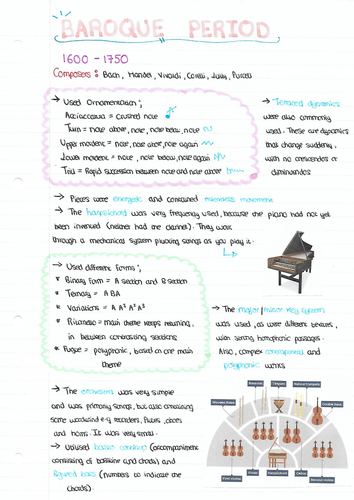 BAROQUE PERIOD
1600 - 1750
Composers : Bach, Handel, Vivaldi, Corelli, Lully, Purcell
→ Used Ornamentation ;
Acciaccatura = crushed note
Turn = note above, note, note below, note
Upper mordent = note, note above, note again
Lower mordent = note, note below, note again
Trill = Rapid succession between note and note above
→ Terraced dynamics
were also commonly
used. These are dynamics
that change suddenly,
with no crescendos or
diminuendos
→ Pieces were energetic and contained movement
→ The harpsichord was very frequently used, because the piano had not yet
been invented (neither had the clarinet). They work
through a mechanical system plucking strings as you play it.
→ Used different forms ;
* Binary form = A section and B section
* Ternary = ABA
* Variations = A A¹ A² A³
* Ritornello = main theme keeps returning,
in between contrasting sections
* Fugue = polyphonic, based on one main
theme
→ The major/minor key system
was used, as were different textures,
with strong homophonic passages.
Also, complex contrapuntal and
polyphonic works
→ The orchestra was very simple
and was primarily strings, but also containing
some woodwind e.g recorders, flutes, oboes
and horns. It was very small.
→ Utilised basso continuo (accompaniment
consisting of bassline and chords) and
figured bass (numbers to indicate the
chords)